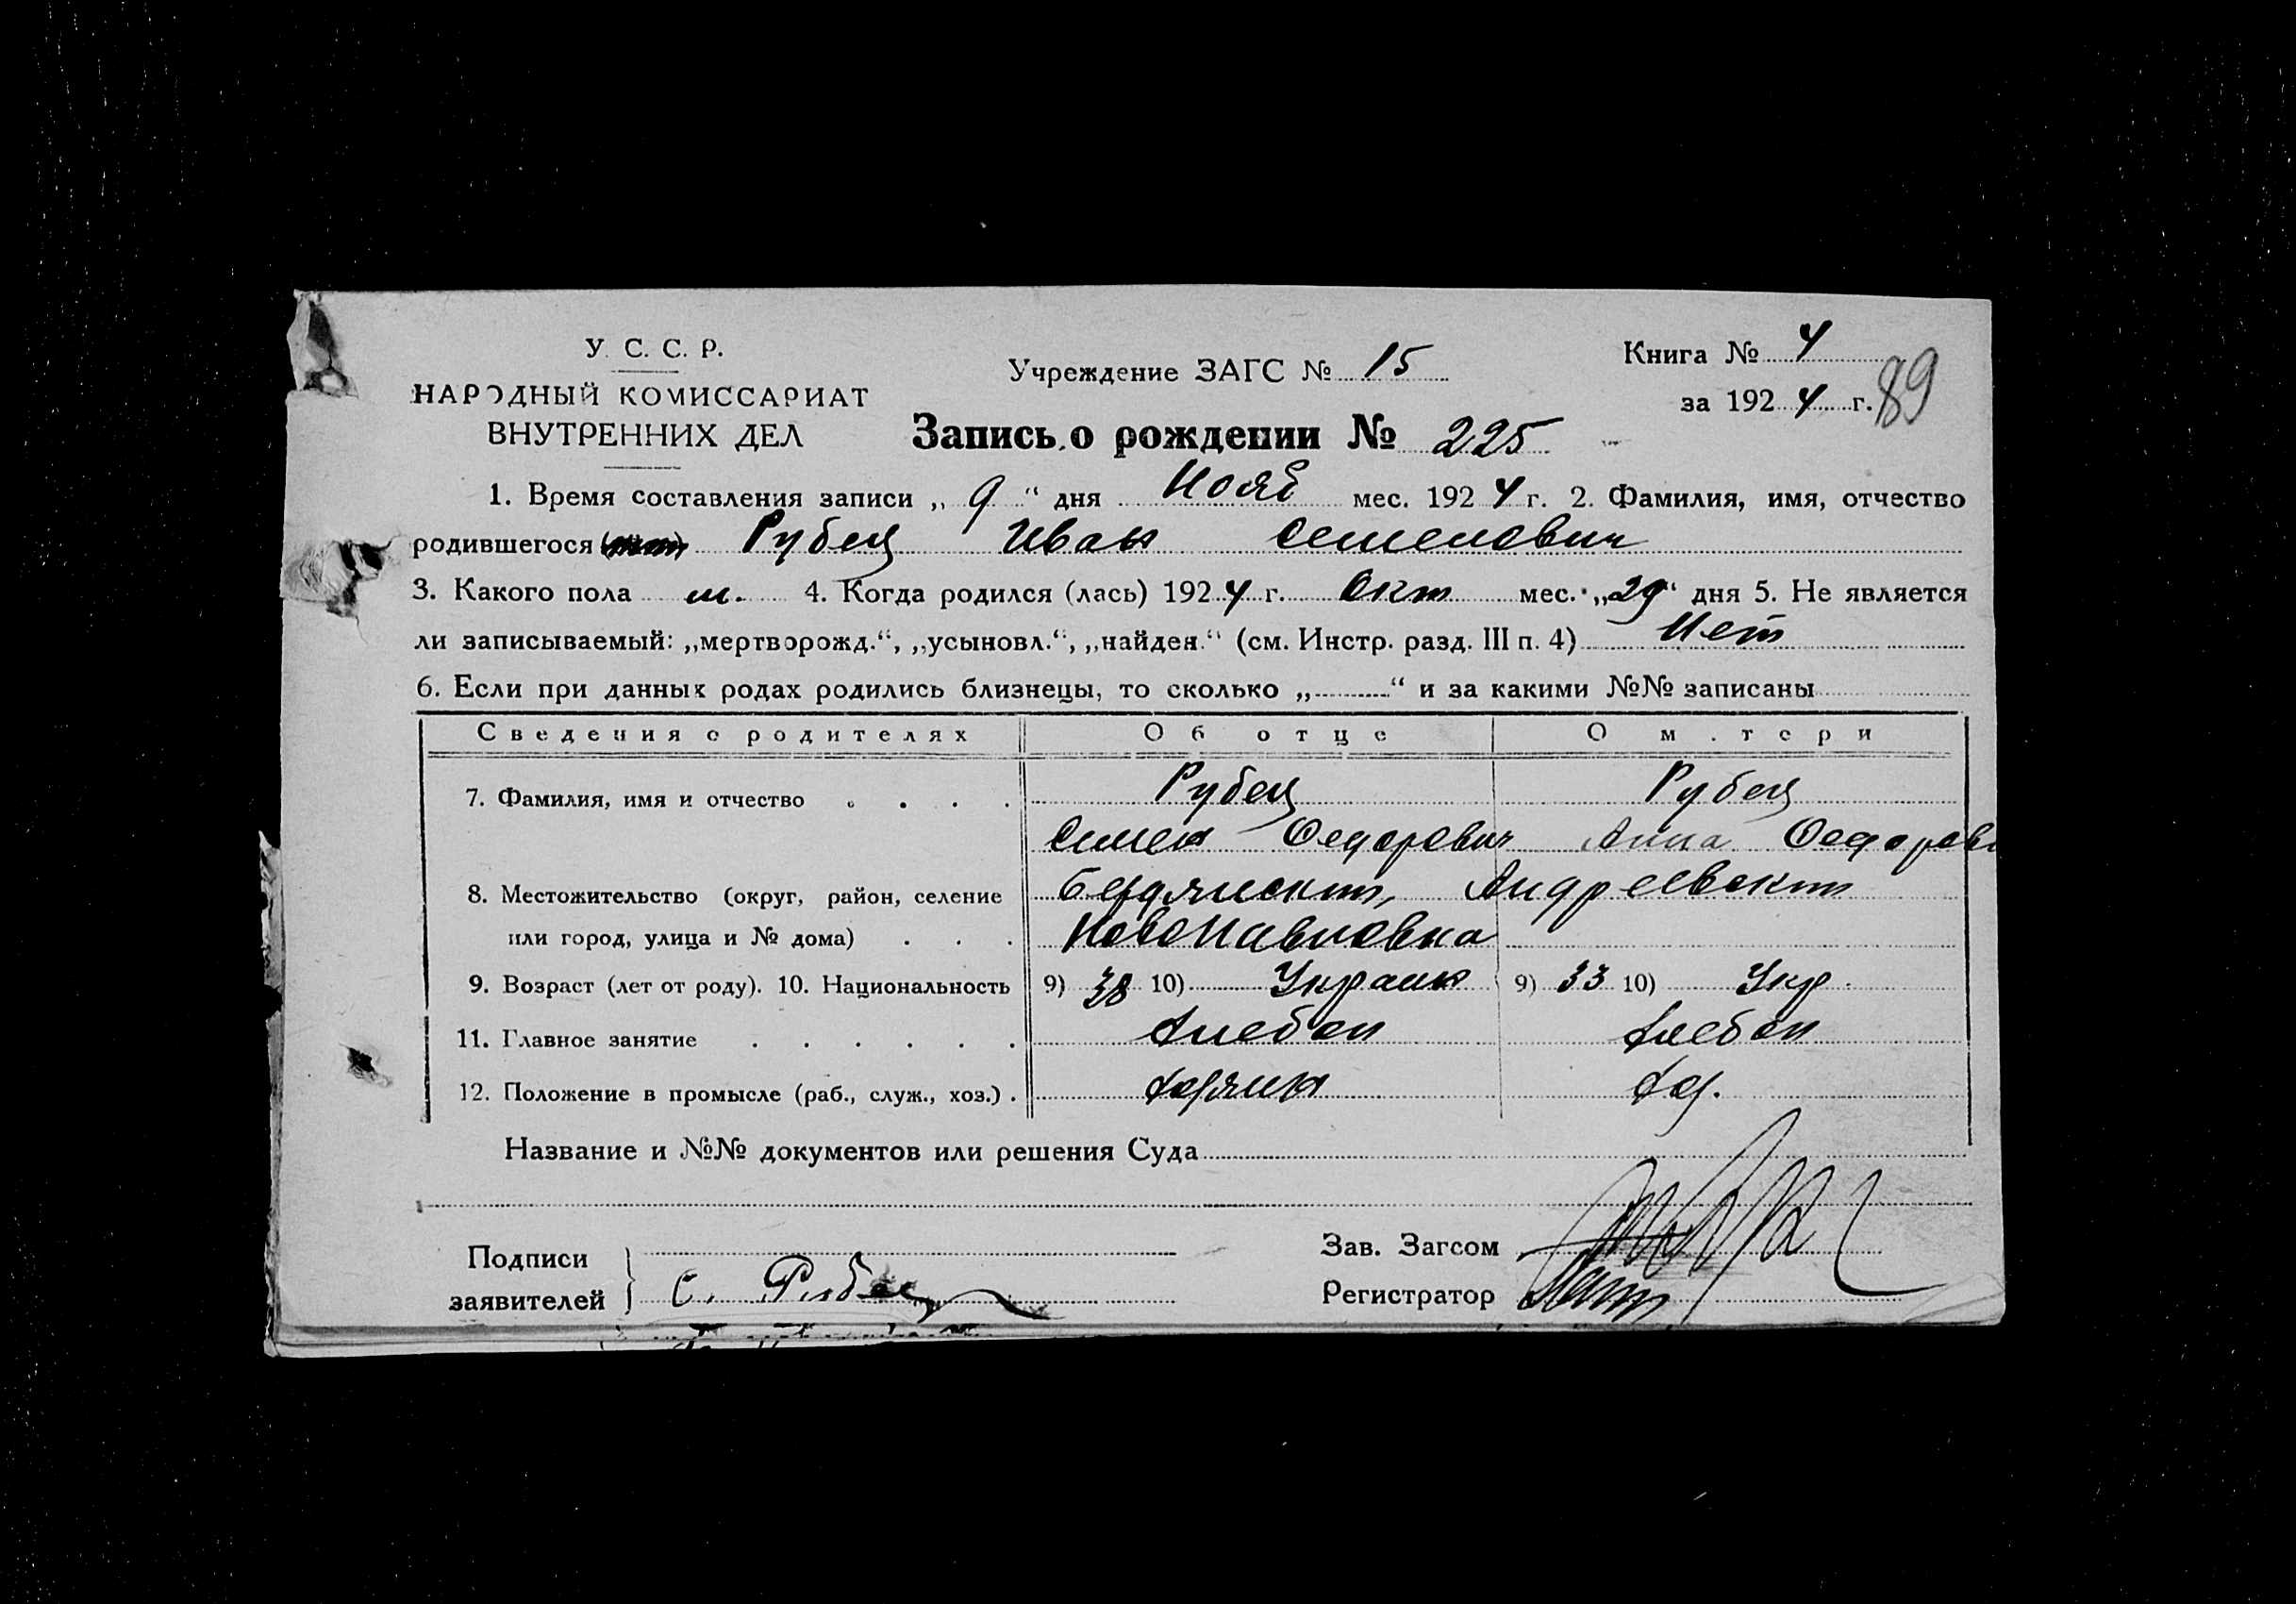 У. С. С. Р.
НАРОДНЫЙ КОМИССАРИАТ
ВНУТРЕННИХ ДЕЛ
Учреждение ЗАГС № 15
Книга № 4
за 1924 г.
89
Запись о рождении № 225
1. Время составления записи „ 9 “ дня Нояб мес. 1924 г. 2. Фамилия, имя, отчество
родившегося Рубец Иван Семенович
3. Какого пола м. 4. Когда родился (лась) 1924 г. Окт мес. „29“ дня 5. Не является
ли записываемый: „мертворожд.“, „усыновл.“, „найден.“ (см. Инстр. разд. III п. 4) Нет
6. Если при данных родах родились близнецы, то сколько „ “ и за какими №№ записаны
Сведения о родителях Об отце О м.тери
7. Фамилия, имя и отчество Рубец Рубец
Семен Федорович Анна Федоровн
8. Местожительство (округ, район, селение Бердянский, Андреевский
или город, улица и № дома) Новопавловка
9. Возраст (лет от роду). 10. Национальность 9) 38 10) Украин 9) 33 10) Укр.
11. Главное занятие Хлебоп Хлебоп
12. Положение в промысле (раб., служ., хоз.) Хозяин Хоз.
Название и №№ документов или решения Суда
Подписи
заявителей С. Рубец
Зав. Загсом
Регистратор